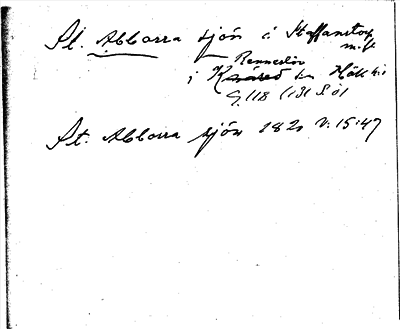 Pl. Abborra sjön i Staffanstorp
m.fl.
Renneslöv
i Knäred sn Hök h:i
G 118 (131 S öl
St. Abborra sjön 1820 V. 15:47